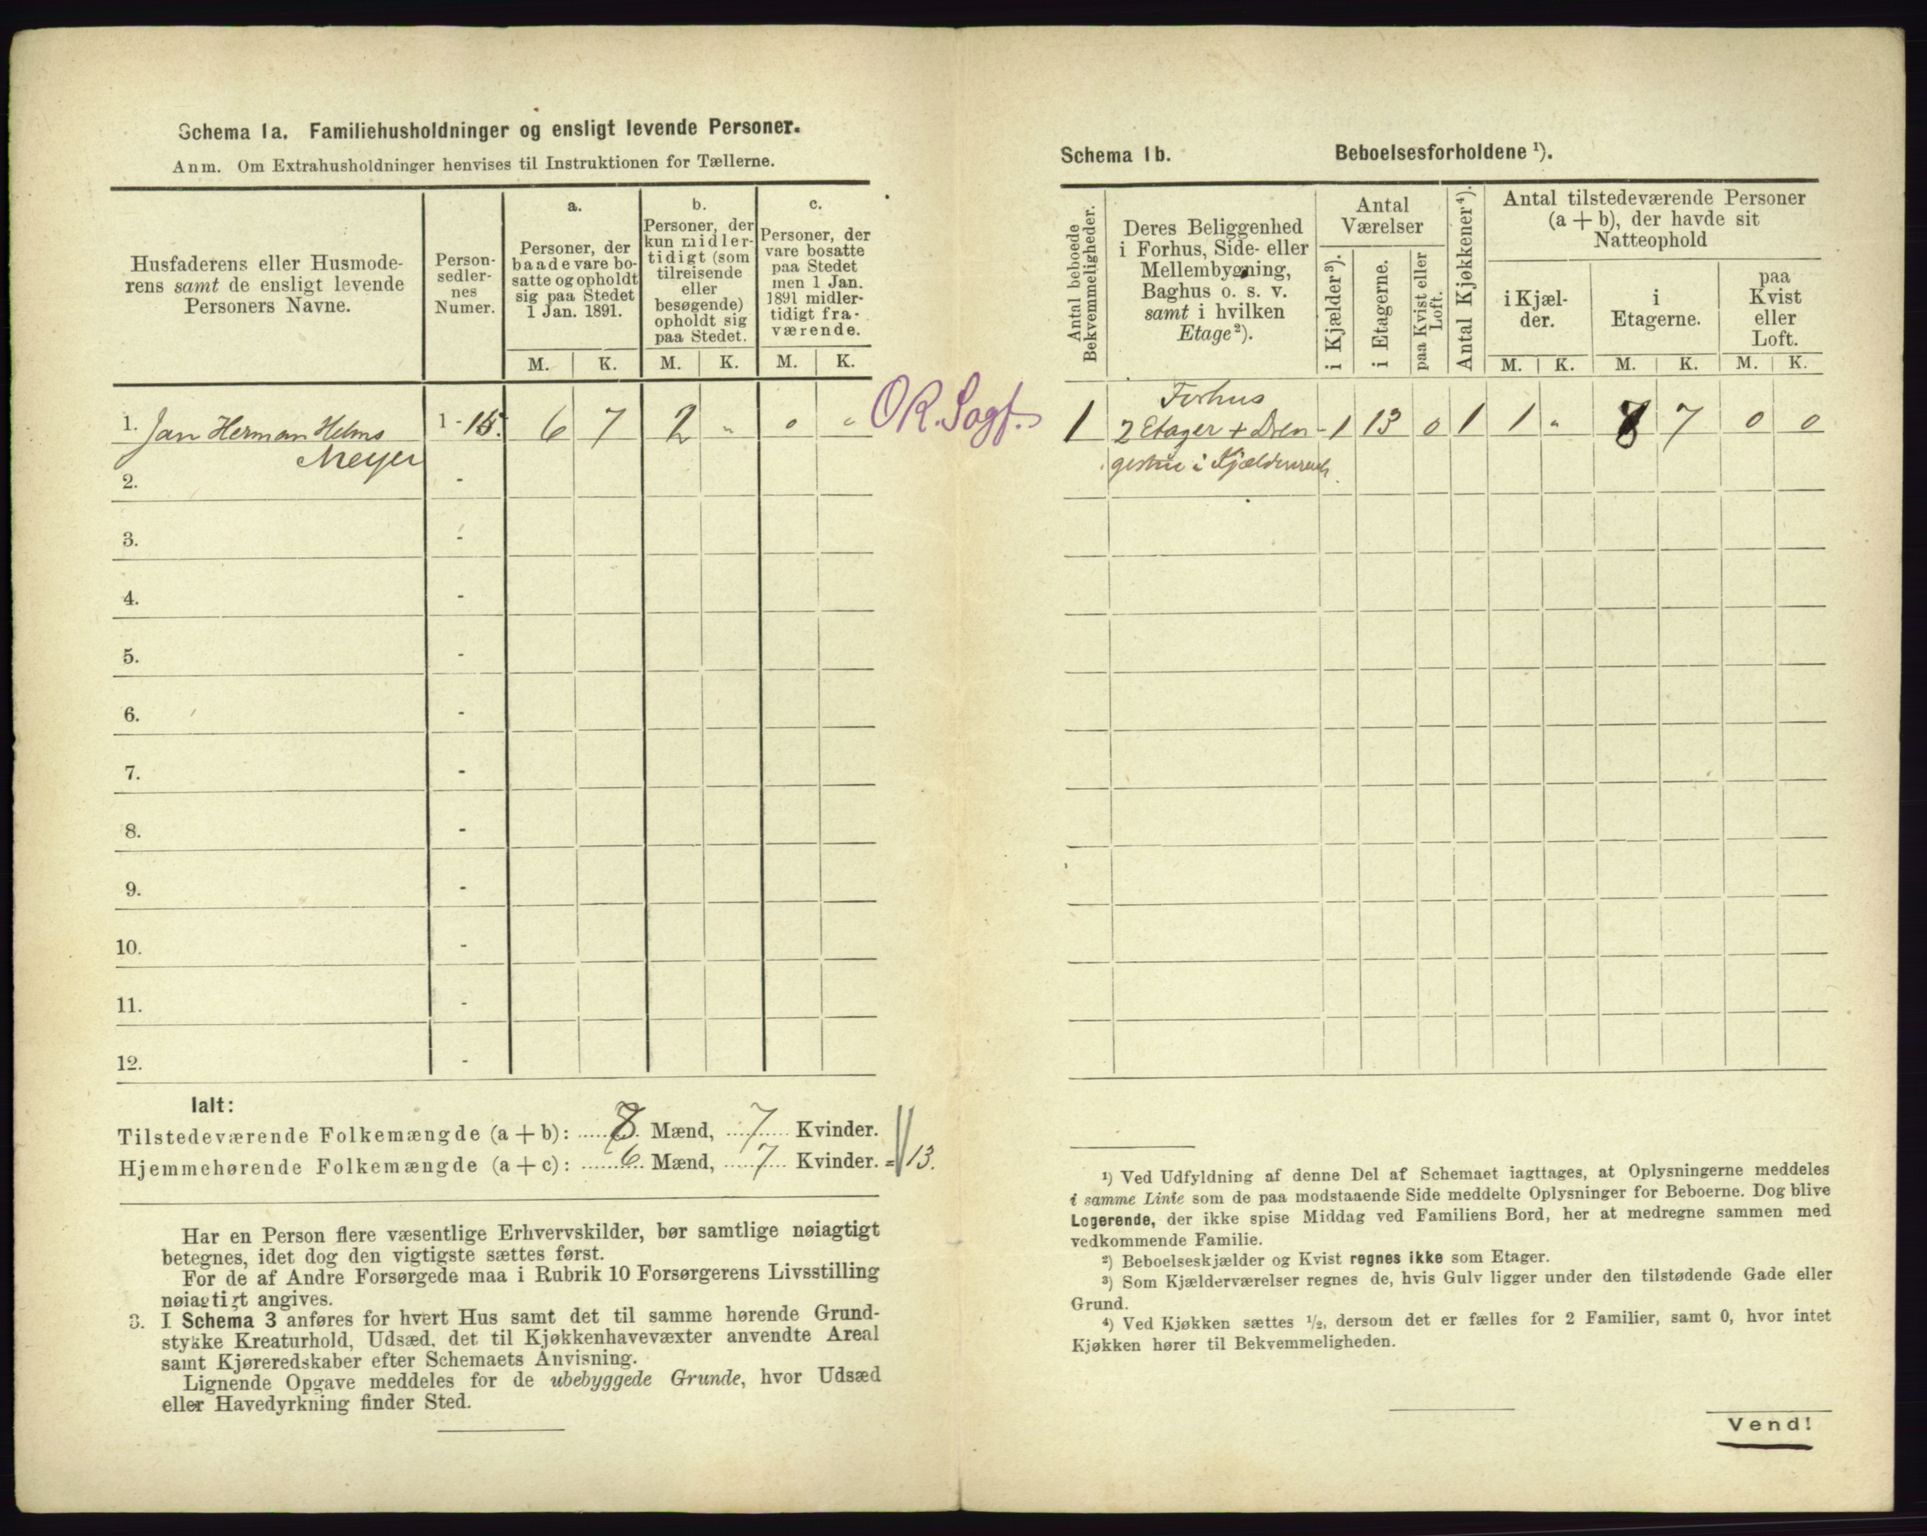 Schema 1a. Familiehusholdninger og ensligt levende Personer.
Anm. Om Extrahusholdninger henvises til Instruktionen for Tællerne.
Husfaderens eller Husmode-
rens samt de ensligt levende
Personers Navne.
Person-
sedler-
nes
Numer.
a.
Personer, der
baade vare bo-
satte og opholdt
sig paa Stedet
1 Jan. 1891.
b.
Personer, der
kun midler-
tidigt (som
tilreisende
eller
besøgende)
opholdt sig
paa Stedet.
c.
Personer, der
vare bosatte
paa Stedet
men 1 Jan.
1891 midler-
tidigt fra-
værende.
M. K. M. K. M. K.
1. Jan Herman Helms 1 - 15. 6 7 2 „ 0 0
Meyer
2. -
3. -
4. -
5. -
6. -
7. -
8. -
9. -
10. -
11. -
12. -
Ialt:
Tilstedeværende Folkemængde (a + b): 8 Mænd, 7 Kvinder.
Hjemmehørende Folkemængde (a + c): 6 Mænd, 7 Kvinder. = 13.
Har en Person flere væsentlige Erhvervskilder, bør samtlige nøiagtigt
betegnes, idet dog den vigtigste sættes først.
For de af Andre Forsørgede maa i Rubrik 10 Forsørgerens Livsstilling
nøiagtigt angives.
3. I Schema 3 anføres for hvert Hus samt det til samme hørende Grund-
stykke Kreaturhold, Udsæd, det til Kjøkkenhavevæxter anvendte Areal
samt Kjøreredskaber efter Schemaets Anvisning.
Lignende Opgave meddeles for de ubebyggede Grunde, hvor Udsæd
eller Havedyrkning finder Sted.
Schema 1b. Beboelsesforholdene ¹).
Antal beboede
Bekvemmeligheder.
Deres Beliggenhed
i Forhus, Side- eller
Mellembygning,
Baghus o. s. v.
samt i hvilken
Etage²).
Antal
Værelser
i Kjælder³).
i Etagerne.
paa Kvist eller
Loft.
Antal Kjøkkener⁴).
Antal tilstedeværende Personer
(a + b), der havde sit
Natteophold
i Kjæl-
der.
i
Etagerne.
paa
Kvist
eller
Loft.
M. K. M. K. M. K.
Forhus
1 2 Etager + Dren- 1 13 0 1 1 „ 7 0 0
gestue i
¹) Ved Udfyldning af denne Del af Schemaet iagttages, at Oplysningerne meddeles
i samme Linie som de paa modstaaende Side meddelte Oplysninger for Beboerne. Dog blive
Logerende, der ikke spise Middag ved Familiens Bord, her at medregne sammen med
vedkommende Familie.
²) Beboelseskjælder og Kvist regnes ikke som Etager.
³) Som Kjælderværelser regnes de, hvis Gulv ligger under den tilstødende Gade eller
Grund.
⁴) Ved Kjøkken sættes ½, dersom det er fælles for 2 Familier, samt 0, hvor intet
Kjøkken hører til Bekvemmeligheden.
Vend!